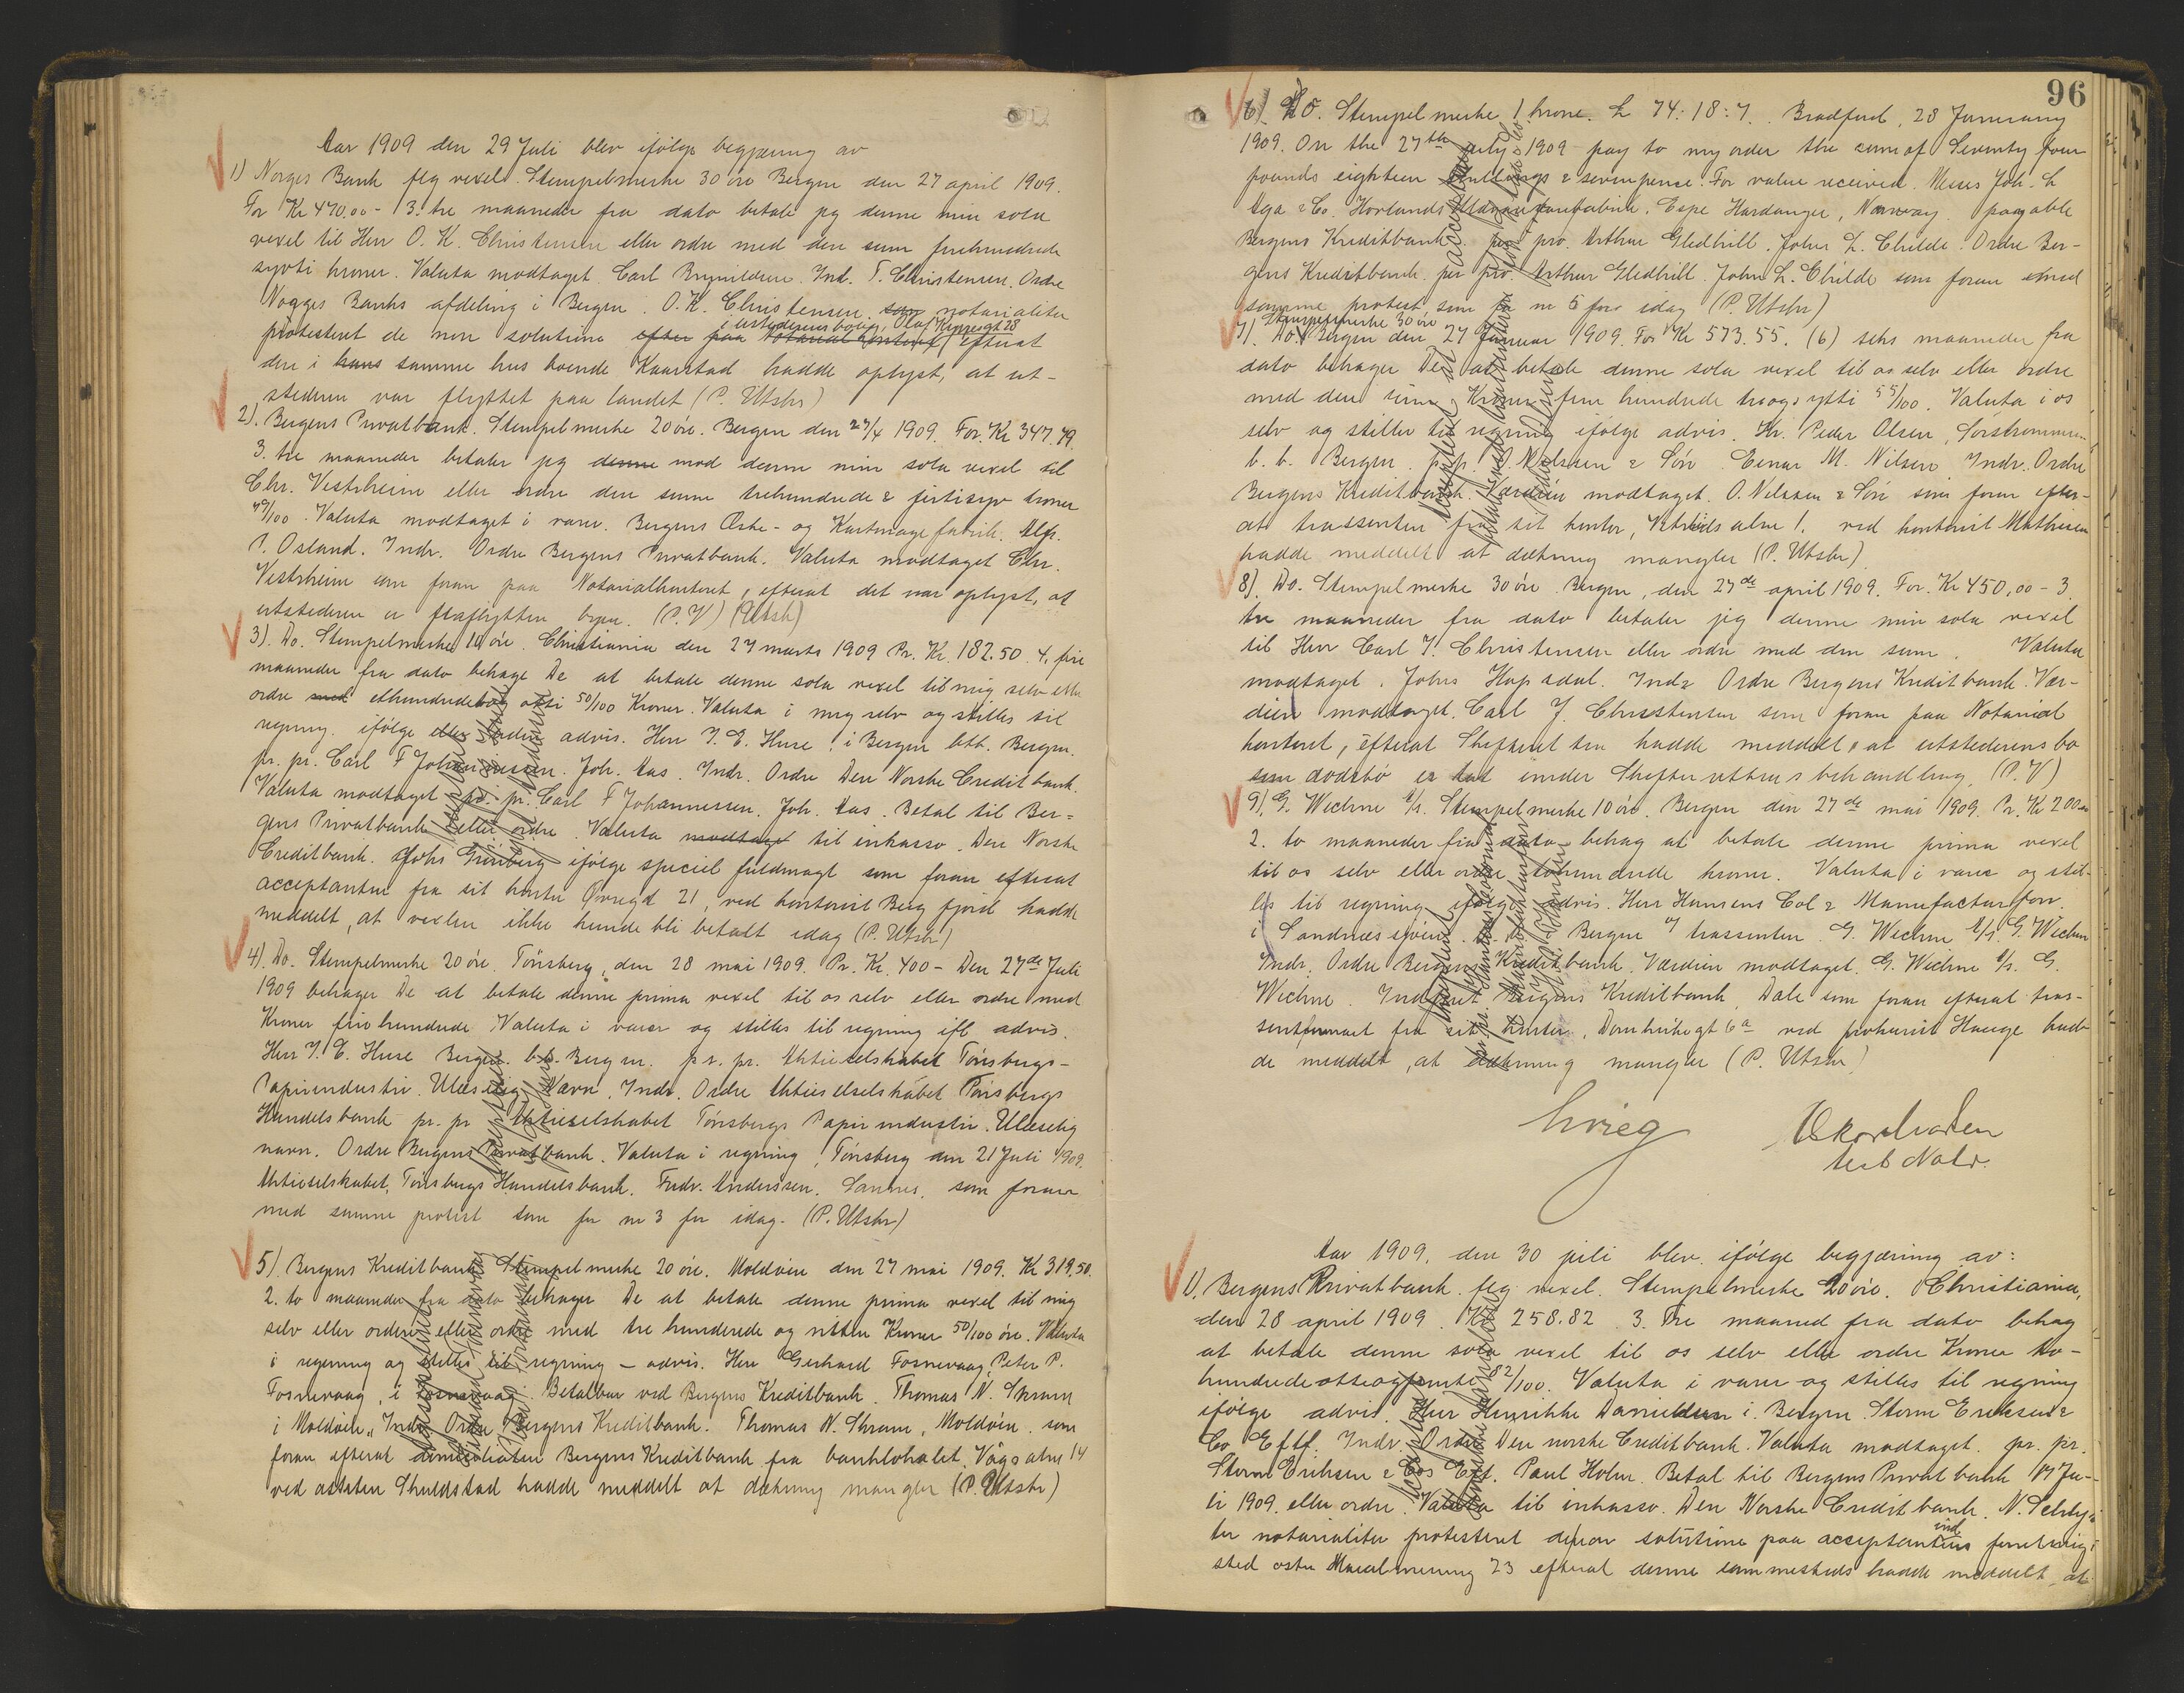 Aar 1909 den 29 Juli blev ifölge begjæring av
1) Norges Bank flg vexel. Stempelmerke 30 öre Bergen den 27 april 1909.
For Kr 470.00 - 3. tre maaneder fra dato betale jeg denne min sola
vexel til Herr O. K. Christensen eller ordre med den sum firehundrede
sytti kroner. Valuta modtaget. Carl Brynildsen. Ind. T. Christensen. Ordre
Norges Banks afdeling i Bergen. O. K. Christensen. som notarialiter
i utstederens bolig, Olaf Kyrresgt 28
protesteret de non solutione efter paa Notarial kontoret, efterat
den i hans samme hus boende Kaarstad hadde oplyst, at ut-
stederen var flyttet paa landet (P. Utskr)
2). Bergens Privatbank. Stempelmerke 20 öre. Bergen den 27/4 1909. For Kr 347.49.
3. tre maaneder betaler jeg denne mod denne min sola vexel til
Chr. Vestrheim eller ordre den sum trehundrede & firtisyv kroner
49/100. Valuta modtaget i varer. Bergens Æske- og Kartonagefabrik. Alfr.
P. Osland. Indr. Ordre Bergens Privatbank. Valuta modtaget Chr.
Vestrheim som foran paa Notarialkontoret, efterat det var oplyst, at
utstederen er fraflytten byen. (P. V) (Utsk)
3). Do. Stempelmerke 10 öre. Christiania den 27 marts 1909 Pr. Kr. 182.50. 4, fire
maaneder fra dato behage De at betale denne sola vexel til mig selv eller
ordre med ethundredeog otti 50/100 Kroner. Valuta i mig selv og stilles til
regning ifölge eller uden advis. Herr J. E. Huse i Bergen btb. Bergen.
pr. pr. Carl F Johannessen. Joh. Aas. Indr. Ordre Den Norske Creditbank.
Valuta modtaget pr. pr. Carl F Johannessen. Joh. Aas. Betal til Ber-
gens Privatbank eller ordre. Valuta modtaget til inkasso. Den Norske
Creditbank. Johs Grünberg ifölge speciel fuldmagt som foran efterat
acceptanten fra sit kontor Øvregt 21, ved kontorist Berg fjord hadde
meddelt, at vexlen ikke kunde bli betalt idag (P. Utskr)
4). Do. Stempelmerke 20 öre. Tönsberg, den 28 mai 1909. Pr. Kr. 400 - Den 27de Juli
1909 behager De at betale denne prima vexel til os selv eller ordre med
Kroner firehundrede Valuta i varer og stilles til regning ifl. advis.
Herr J. E. Huse Bergen. bb. Bergen. pr. pr. Aktieselskabet Tönsbergs-
Papirindustri. Ulæselig Navn. Indr. Ordre Aktieselselskabet Tönsbergs
Handelsbank pr. pr Aktieselskabet Tönsbergs Papirindustri. Ulæselig
navn. Ordre Bergens Privatbank. Valuta i regning, Tönsberg den 21 Juli 1909.
Aktieselskabet, Tönsbergs Handelsbank. Fredr. Anderssen. Sannes. som foran
med samme protest som for no 3 for idag. (P. Utskr)
5). Bergens Kreditbank Stempelmerke 20 öre. Moldöen den 27 mai 1909. Kr 319,50.
2. to maaneder fra dato behager De at betale denne prima vexel til mig
selv eller ordren eller ordre med tre hunderede og nitten Kroner 50/100 öre. Valuta
i regning og stilles til regning - advis. Herr Gerhard Fosnevaag, Peter P.
Fosnevaag, i Fosnevaag. Betalbar ved Bergens Kreditbank. Thomas N. Skram
i Moldöen. Indr. Ordre Bergens Kreditbank. Thomas N. Skram, Moldöen. som
foran efterat domisiliaten Bergens Kreditbank fra banklokalet, Vågs alm 14
ved assisten Skuldstad hadde meddelt at dækning mangler (P. Utskr)
96
6). Do. Stempelmerke 1 krone. £ 74:18:7. Bradford, 23 January
1909. On the 27th july 1909 pay to my order the sum of Seventy four
pounds eighteen shillings & sevenpence. For value received. Messrs Joh. L
Aga & Co. Hovlands Uldvarefabrik. Espe Hardanger, Norway. payable
Bergens Kreditbank. per pro. Arthur Gledhill. John L. Childe. Ordre Ber-
gens Kreditbank. per pro Arthur Gledhill. John L. Childe som foran med
samme protest som for no 5 for idag (P. Utskr)
Stempelmerke 30 öre
7). Do. Bergen den 27 Januar 1909. For Kr 573.55. (6) seks maaneder fra
dato behager De at betale denne sola vexel til os selv eller ordre
med den sum Kroner fem hundrede treogsytti 55/100. Valuta i os
selv og stiller til regning ifölge advis. Hr. Peder Olsen,
b. b. Bergen. p.p. O. Nilssen & Sön. Einar M. Nilsen Indr. Ordre
Bergens Kreditbank. Værdien modtaget. O. Nilssen & Sön som foran efter-
at trassenten fra sit kontor, Vetrlids alm 1. ved kontorist Mathiesen
hadde meddelt at dækning mangler (P. Utskr).
8). Do. Stempelmerke 30 öre Bergen, den 27de april 1909. For. Kr 450,00 - 3
tre maaneder fra dato betaler jeg denne min sola vexel
til Herr Carl J. Christensen eller ordre med den sum . Valuta
modtaget. Johs Hopsdal. Ind & Ordre Bergens Kreditbank. Vær-
dien modtaget. Carl J. Christensen som foran paa Notarial
kontoret, efterat Skifteretten hadde meddelt, at utstederens bo
som dødsbo er tat under Skifterettens behandling (P. V)
9). G. Wechne A/S. Stempelmerke 10 öre. Bergen den 27de mai 1909. Pr. Kr 200.00
2. to maaneder fra dato behag at betale denne prima vexel
til os selv eller ordre tohundrede kroner. Valuta i varer og stil-
les til regning ifölge advis. Herr Hansens Col & Manufacturforr.
i Sandnessjöen. Bergen trassenten. G. Wechne A/S. G. Wechne
Indr. Ordre Bergens Kreditbank. Værdien modtaget. G. Wechne A/S. G.
Wechne. Indfriet Bergens Kreditbank. Dale som foran efterat tras-
sentfirmaet fra sit kontor, Domkirkegt 6a ved prokurist Hauge had-
de meddelt, at dækning mangler (P. Utskr)
Aar 1909, den 30 juli blev ifölge begjæring av:
1). Bergens Privatbank. flg. vexel. Stempelmerke 20 öre. Christiania,
den 28 april 1909. Kr 258.82. 3. Tre maaned fra dato behag
at betale denne sola vexel til os selv eller ordre Kroner to-
hundredeotteogfemti 82/100. Valuta i varer og stilles til regning
ifölge advis. Herr Henrikke Danielsen i Bergen. Storm Eriksen &
Co Eftf. Indr. Ordre Den norske Creditbank. Valuta modtaget. pr. pr.
Storm Eriksen & Cos Eft. Paul Holm. Betal til Bergens Privatbank Ju-
li 1909. eller ordre. Valuta til inkasso. Den Norske Creditbank.
ter notarialiter protesteret de non solutione paa acceptantens forretnings
sted östre Muralmening 23 efterat denne sammesteds hadde meddelt at